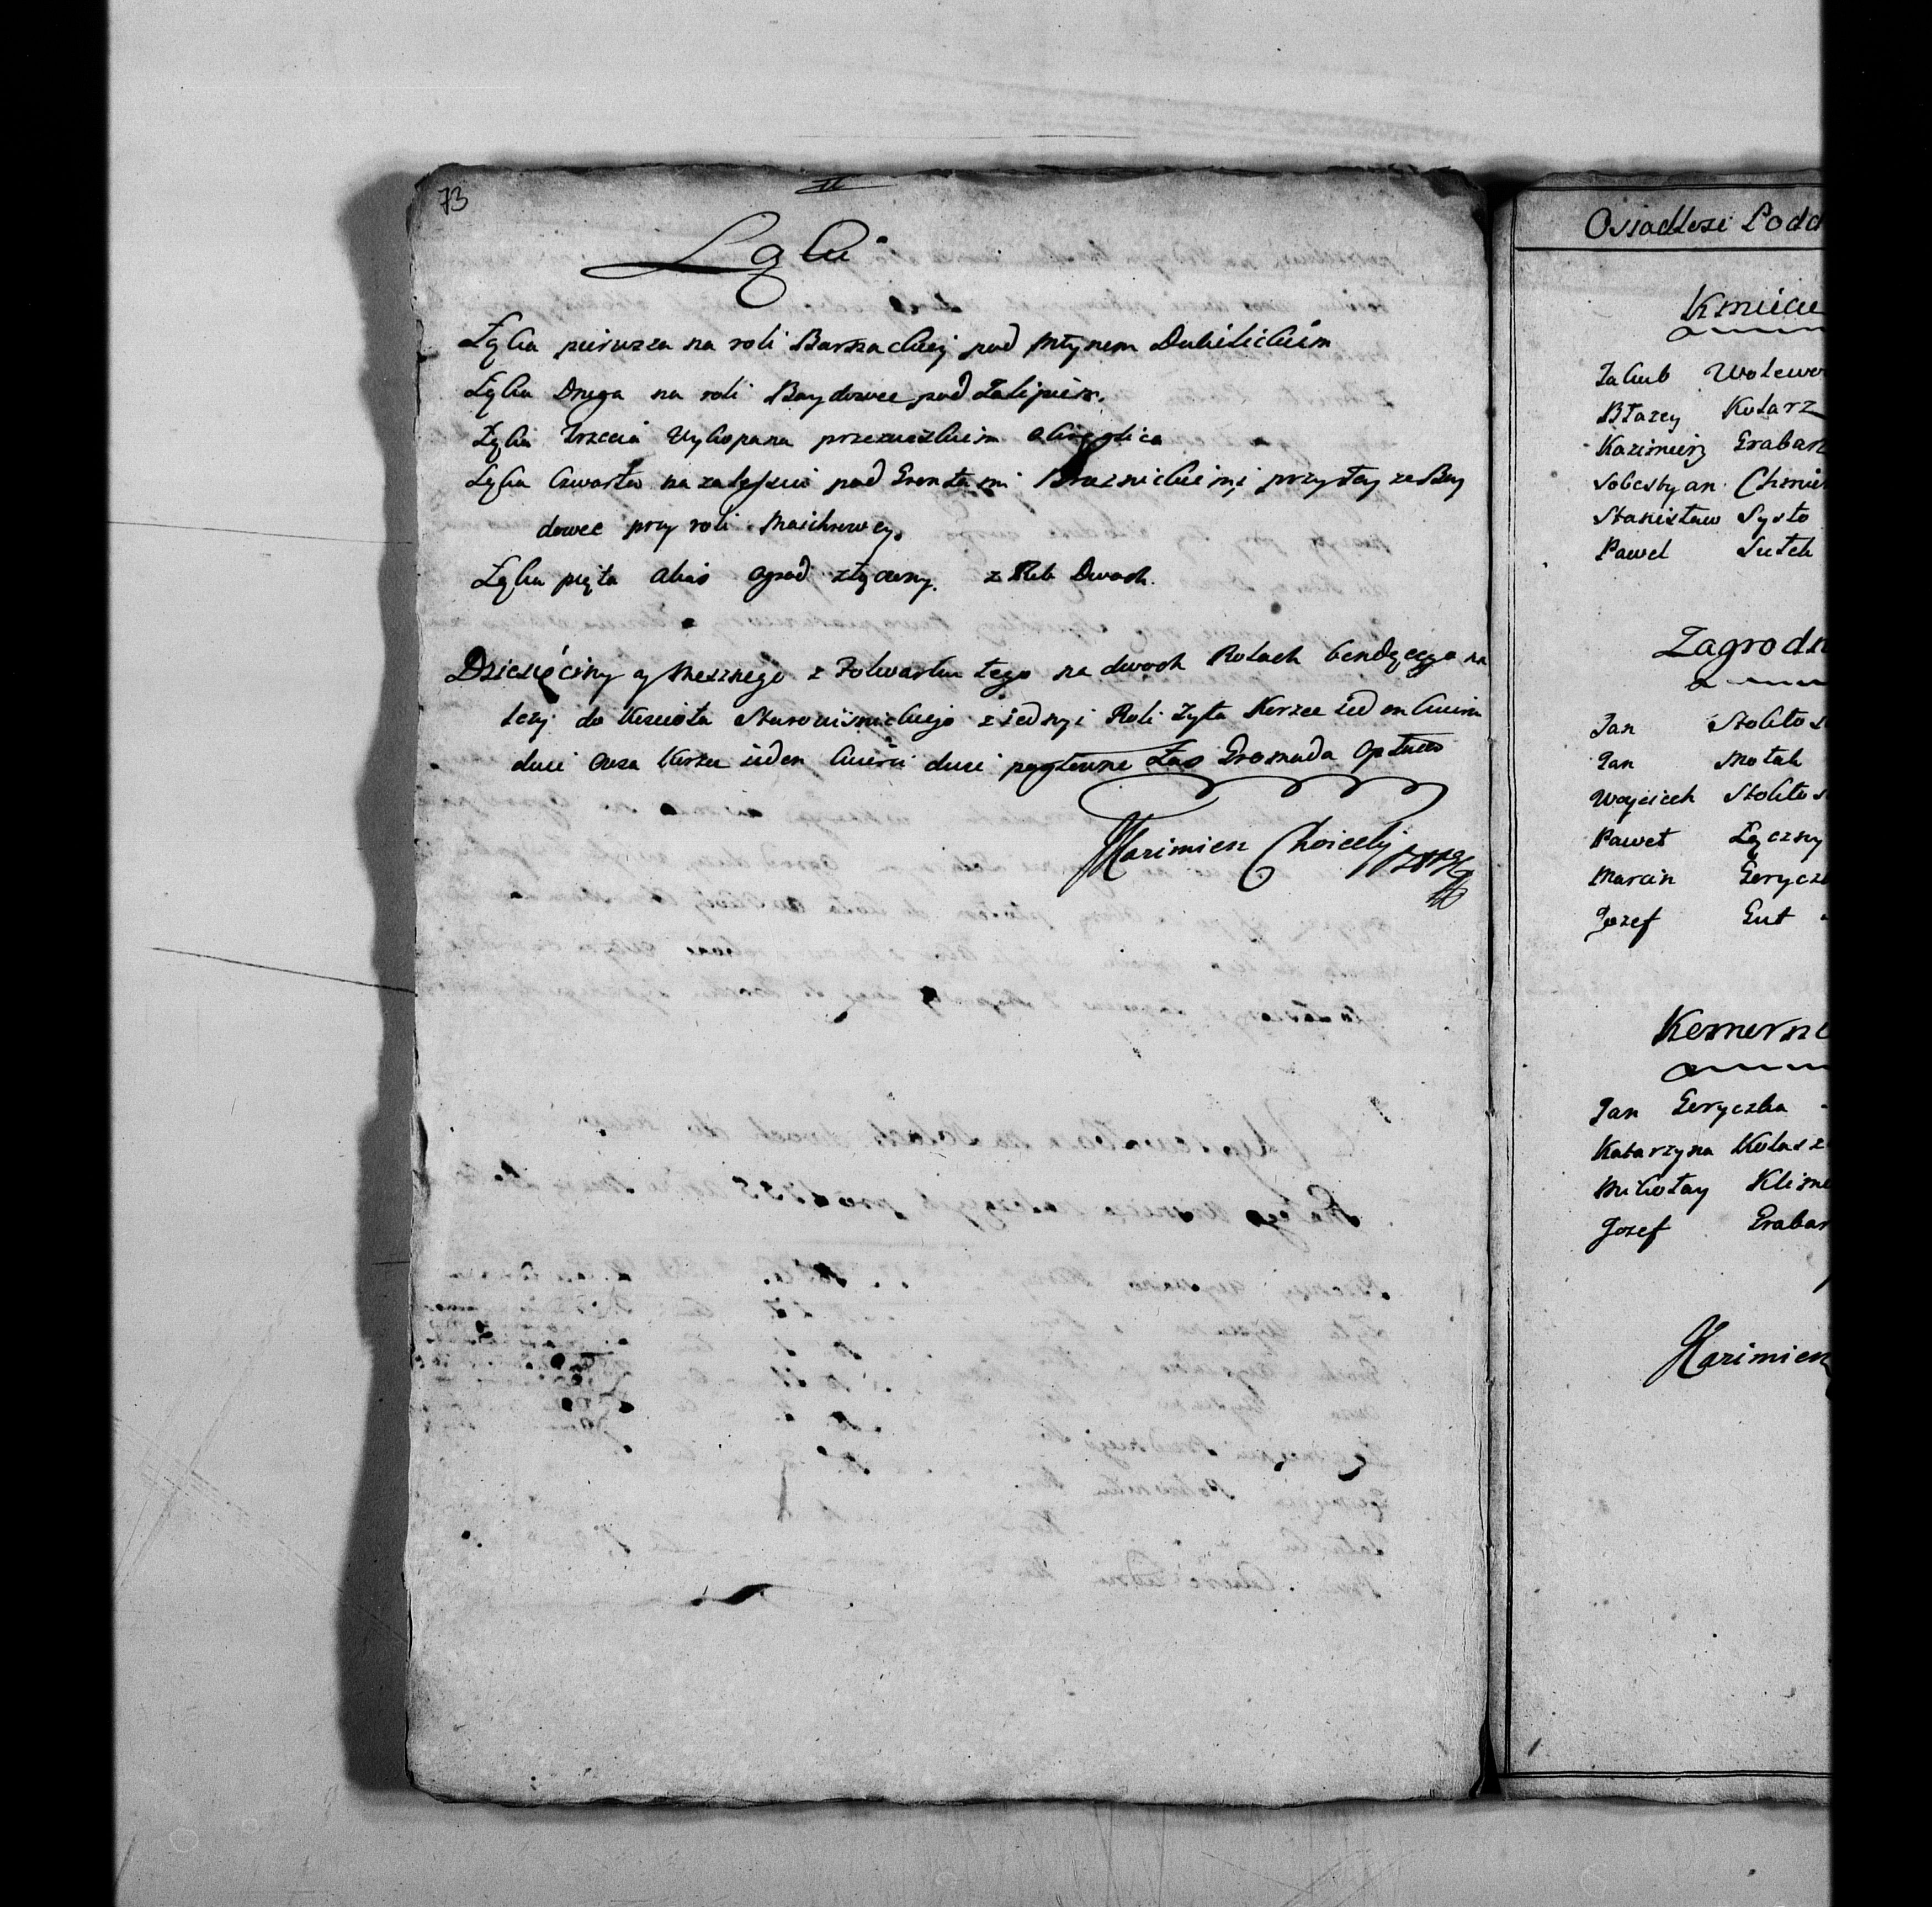 73
Łąki
Łąka pierwsza na roli Barszackiey pod Młynem Dubielickiem
Łąka Druga na roli Baydowce pod Zalipiem.
Łąka Trzecia Wykopana przezwiskiem okręglica
Łąka Czwarta na zalesiu pod Gruntami Brzeznickiemi przy tay ze Bay
dowce przy roli Maichrowey.
Łąka piąta alias ograd złączony. z Rub Dwoch.
Dziesięciny y Mesznego z Folwarku tego na dwoch Rolach bendącego na
leży do Kościoła Starowiśnickiego z iedny i Roli Żyta Korzec ieden Cwierci
dwie Owsa Korzec ieden Cwierci dwie pogłowne Zas Gromada Opłaca
Kazimierz Choiecki
Osiadłosc Podd
Kmiecie
Jakub Wolewo
Błazey Kolarz
Kazimierz Grabarz
Sobestyan Chmie
Stanisław Sysło
Paweł Sutek
Zagrodn
Jan Stokłos
Jan Motak
Woyciech Stokłos
Paweł Łączny
Marcin Gerycz
Jozef Gut
Komorni
Jan Geryczka
Katarzyna Kolasz
Mikołay Klime
Jozef Grabar
Kazimierz